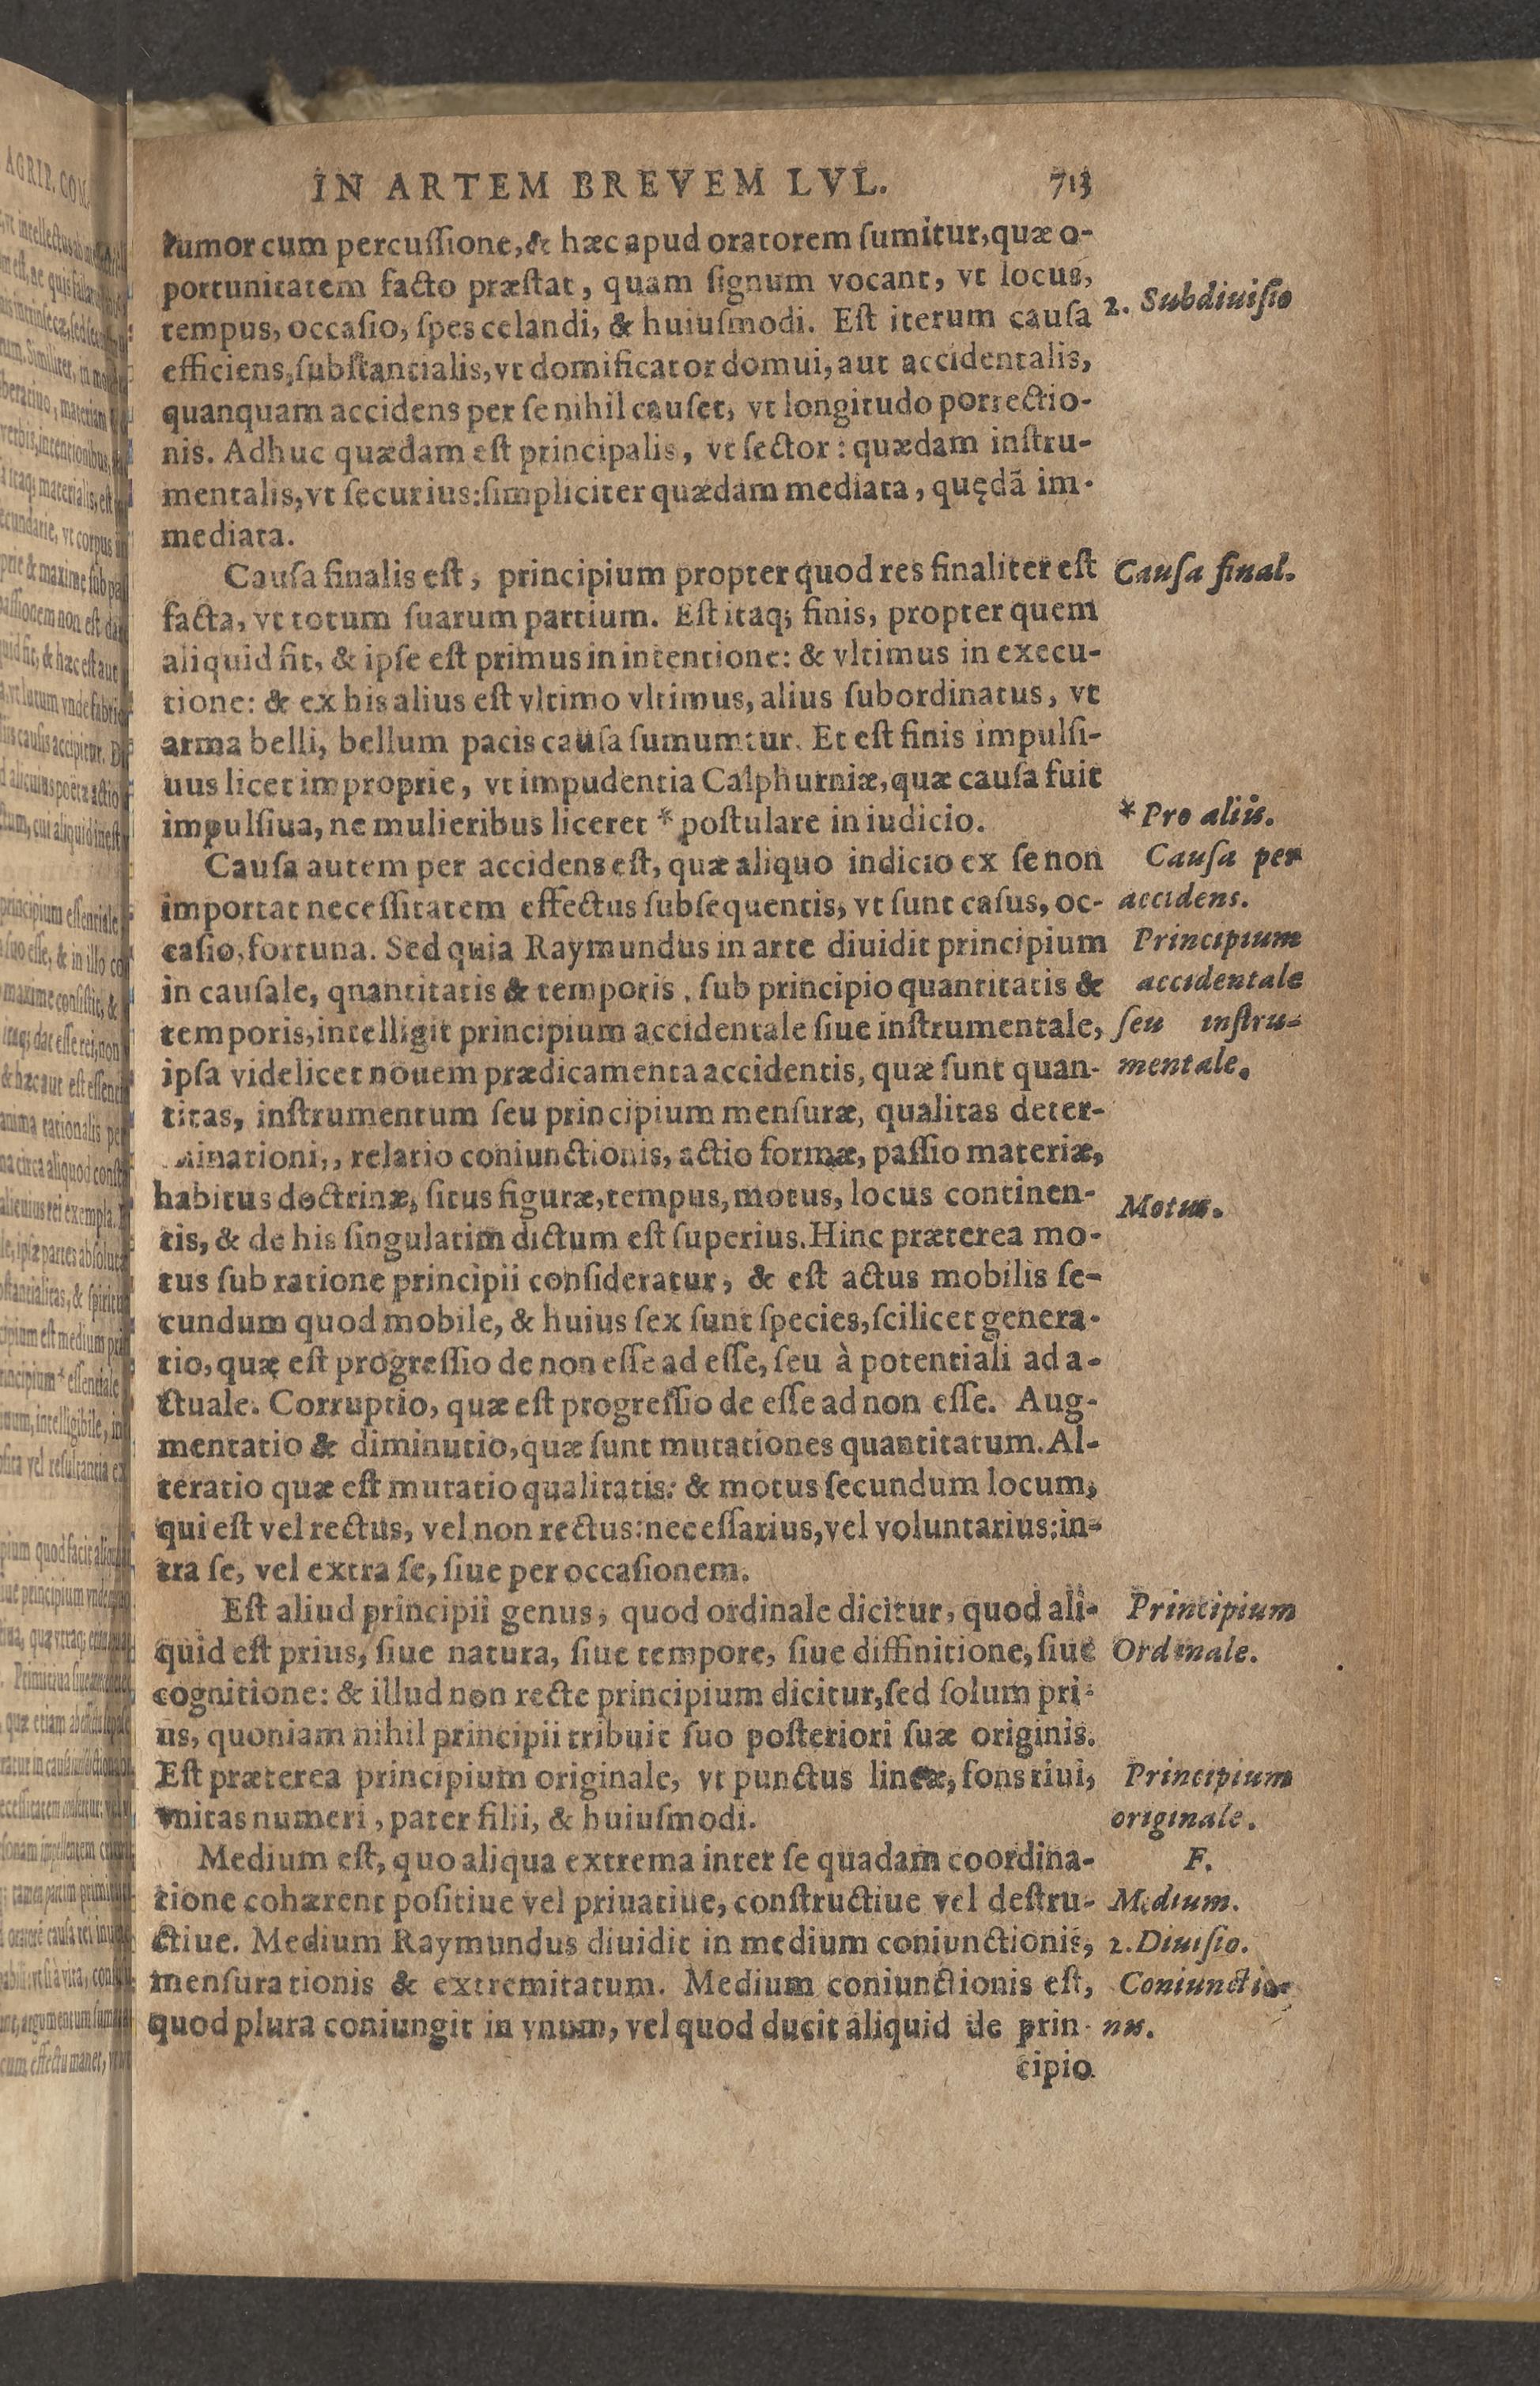 IN ARTEM BREVEM LVL. 713
tumor cum percuſſione, & hæc apud oratorem ſumitur, quæ o-
portunitatem facto præſtat, quam ſignum vocant, vt locus,
tempus, occaſio, ſpes celandi, & huiuſmodi. Eſt iterum cauſa
2. Subdiuiſio
efficiens, ſubſtantialis, vt domificator domui, aut accidentalis,
quanquam accidens per ſe nihil cauſet, vt longitudo porrectio-
nis. Adhuc quædam eſt principalis, vt ſector: quædam inſtru-
mentalis, vt ſecurius: ſimpliciter quædam mediata, quędã im-
mediata.
Cauſa finalis eſt, principium propter quod res finaliter eſt
Cauſa final.
facta, vt totum ſuarum partium. Eſt itaq; finis, propter quem
aliquid fit, & ipſe eſt primus in intentione: & vltimus in execu-
tione: & ex his alius eſt vltimo vltimus, alius ſubordinatus, vt
arma belli, bellum pacis cauſa ſumumtur. Et eſt finis impulſi-
uus licet improprie, vt impudentia Calphurniæ, quæ cauſa fuit
impulſiua, ne mulieribus liceret * poſtulare in iudicio.
* Pro aliis.
Cauſa autem per accidens eſt, quæ aliquo indicio ex ſe non
Cauſa per
importat neceſſitatem effectus ſubſequentis, vt ſunt caſus, oc-
accidens.
caſio, fortuna. Sed quia Raymundus in arte diuidit principium
Principium
in cauſale, qnantitatis & temporis, ſub principio quantitatis &
accidentale
temporis, intelligit principium accidentale ſiue inſtrumentale,
ſeu inſtru-
ipſa videlicet nouem prædicamenta accidentis, quæ ſunt quan-
mentale.
titas, inſtrumentum ſeu principium menſuræ, qualitas deter-
relatio coniunctionis, actio formæ, paſſio materiæ,
habitus doctrinæ, ſitus figuræ, tempus, motus, locus continen-
Motus.
tis, & de his ſingulatim dictum eſt ſuperius. Hinc præterea mo-
tus ſub ratione principii conſideratur, & eſt actus mobilis ſe-
cundum quod mobile, & huius ſex ſunt ſpecies, ſcilicet genera-
tio, quę eſt progreſſio de non eſſe ad eſſe, ſeu à potentiali ad a-
ctuale. Corruptio, quæ eſt progreſſio de eſſe ad non eſſe. Aug-
mentatio & diminutio, quæ ſunt mutationes quantitatum. Al-
teratio quæ eſt mutatio qualitatis: & motus ſecundum locum,
qui eſt vel rectus, vel non rectus: neceſſarius, vel voluntarius: in-
tra ſe, vel extra ſe, ſiue per occaſionem.
Eſt aliud principii genus, quod ordinale dicitur, quod ali-
Principium
quid eſt prius, ſiue natura, ſiue tempore, ſiue diffinitione, ſiue
Ordinale.
cognitione: & illud non recte principium dicitur, ſed ſolum pri-
us, quoniam nihil principii tribuit ſuo poſteriori ſuæ originis.
Eſt præterea principium originale, vt punctus lineæ, fons riui,
Principium
vnitas numeri, pater filii, & huiuſmodi.
originale.
Medium eſt, quo aliqua extrema inter ſe quadam coordina-
F.
tione cohærent poſitiue vel priuatiue, conſtructiue vel deſtru-
Medium.
ctiue. Medium Raymundus diuidit in medium coniunctionis,
2. Diuiſio.
menſurationis & extremitatum. Medium coniunctionis eſt,
Coniunctio-
quod plura coniungit in vnum, vel quod ducit aliquid de prin-
nis.
cipio